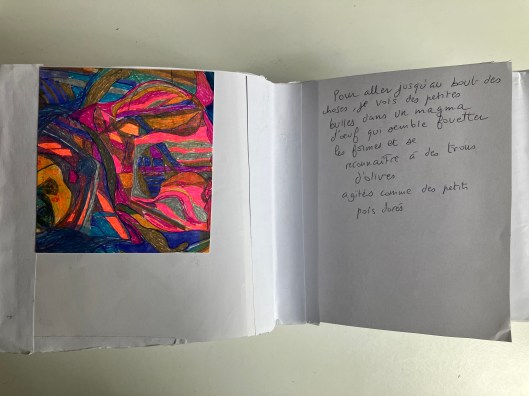 Pour aller jusqu'au bout des
choses, je vois des petites
bulles dans un magma
d'oeuf qui semble fouetter
les formes et se
reconnaître à des trous
d'olives
agités comme des petits
pois dorés